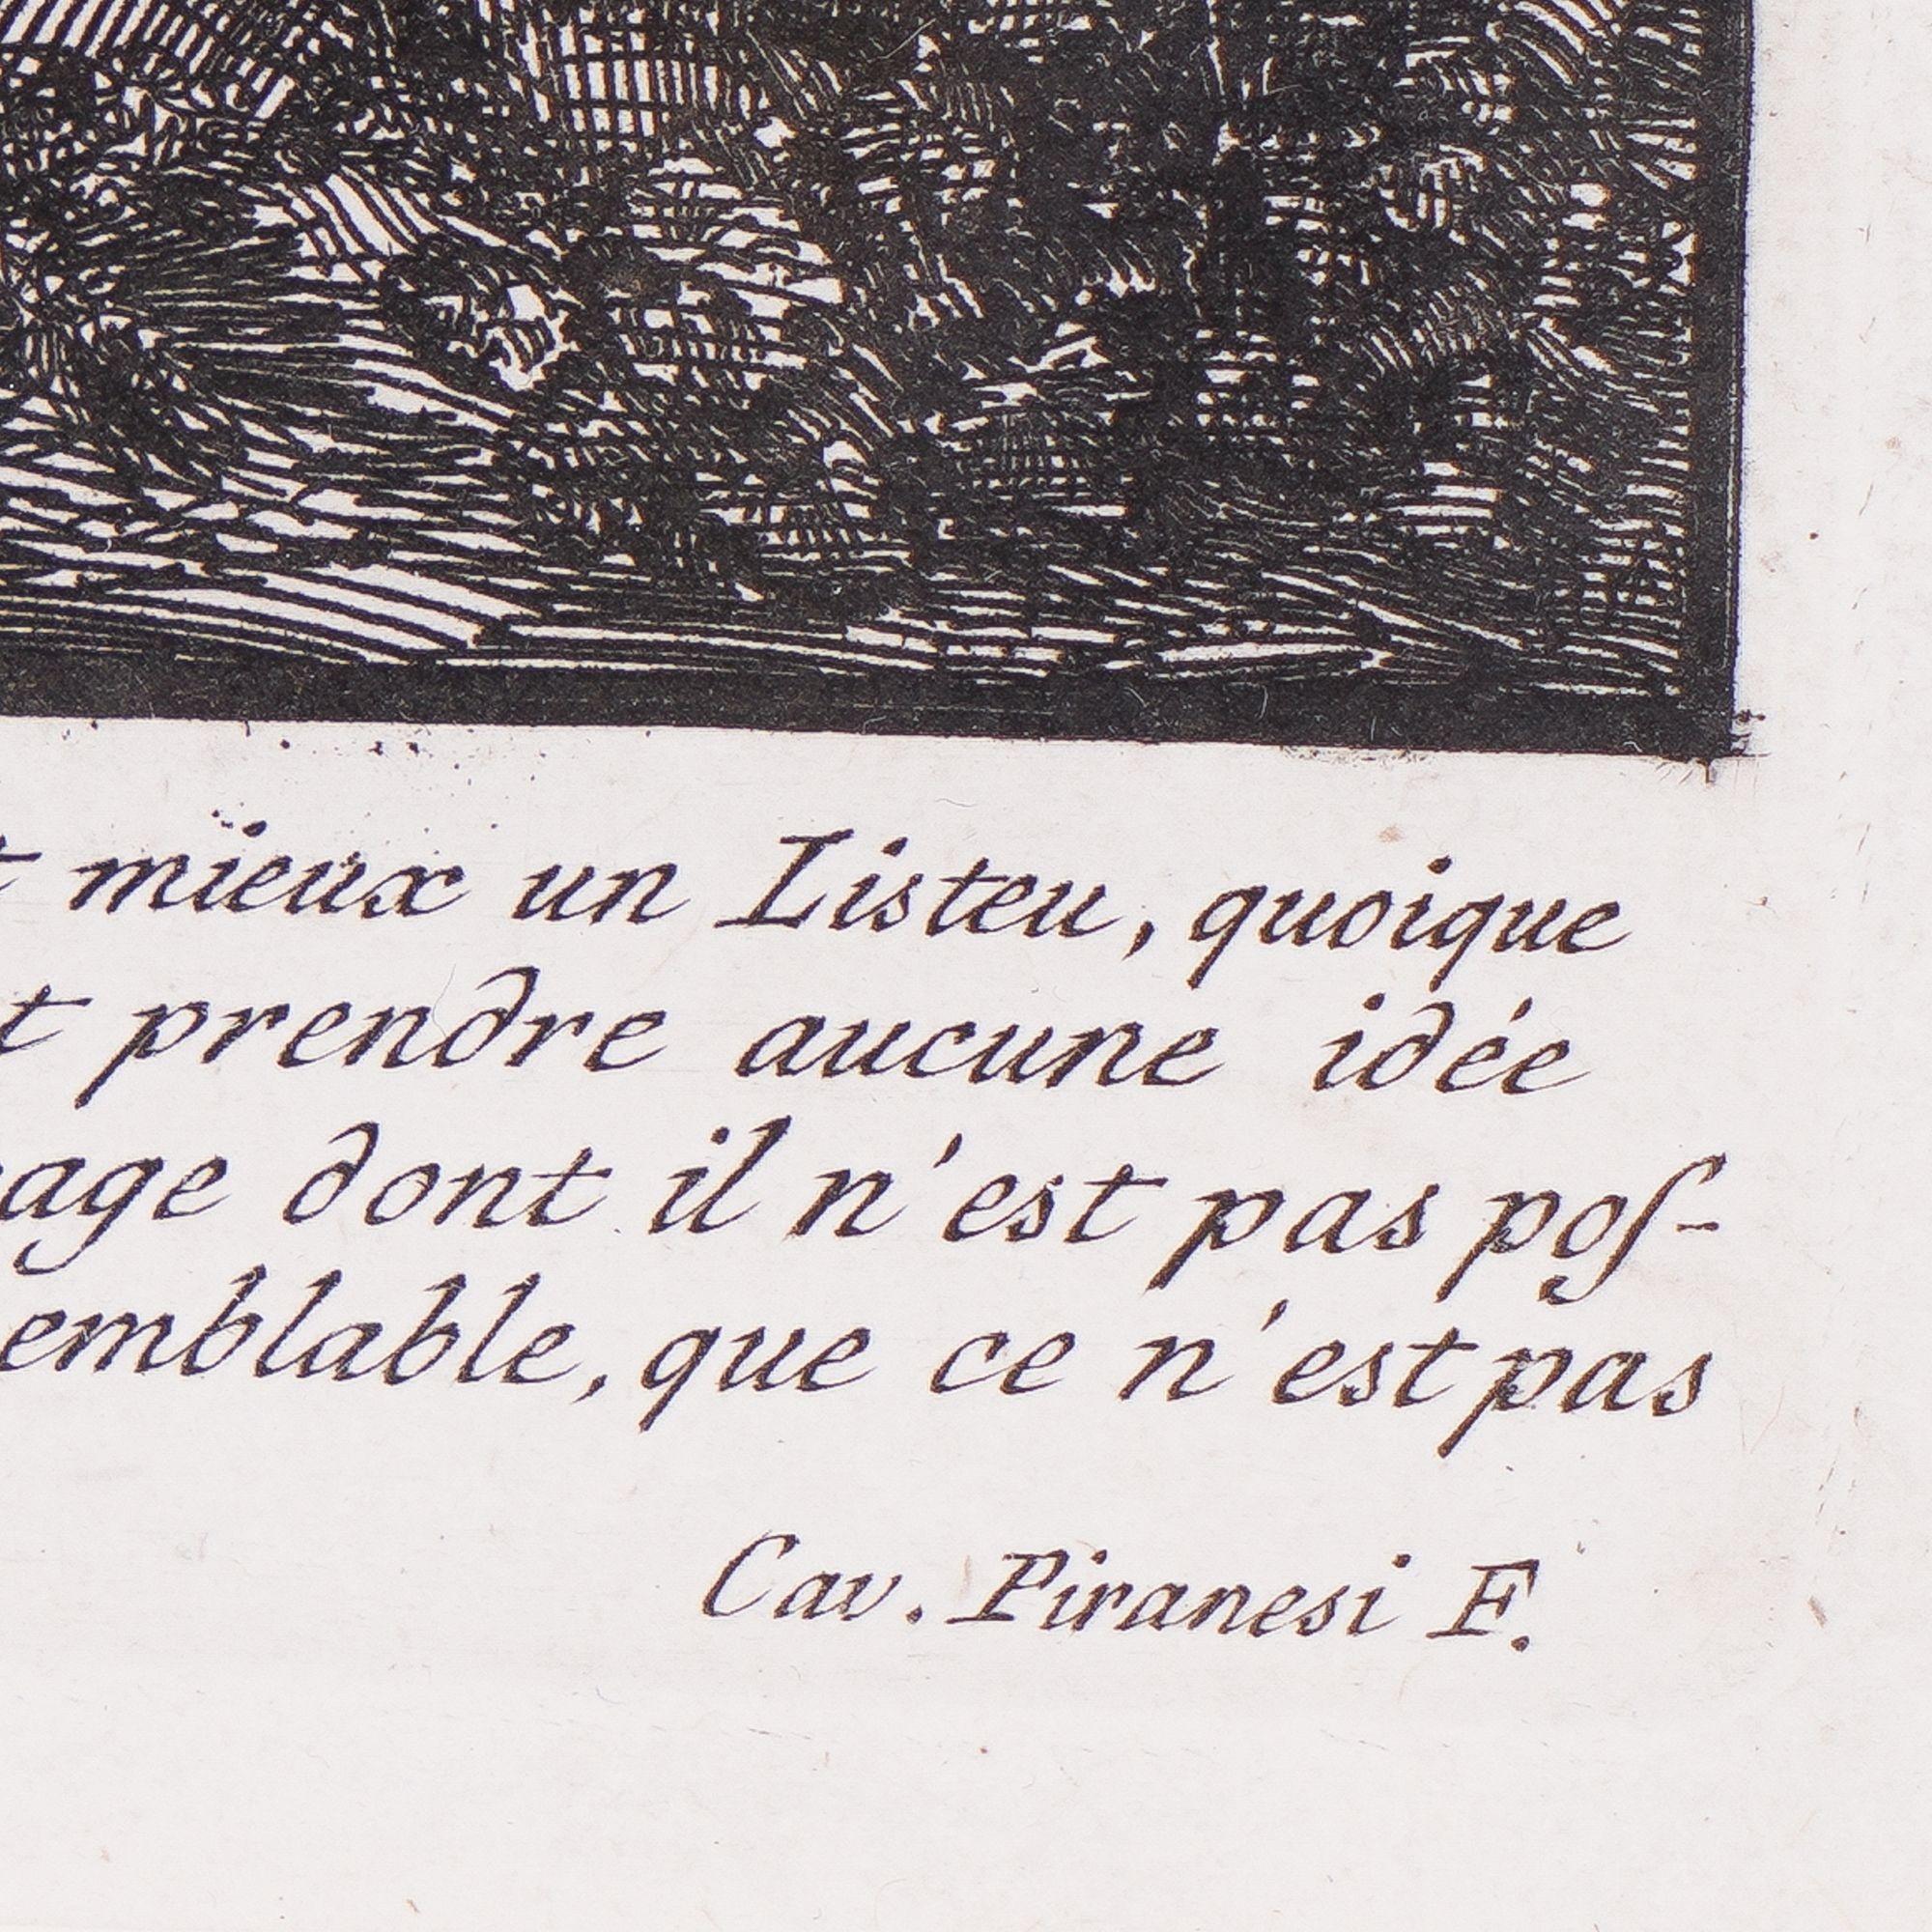 t mieux un Listeu, quoique
t prendre aucune idée
age dont il n'est pas poſ-
emblable, que ce n'est pas
Cav. Piranesi F.